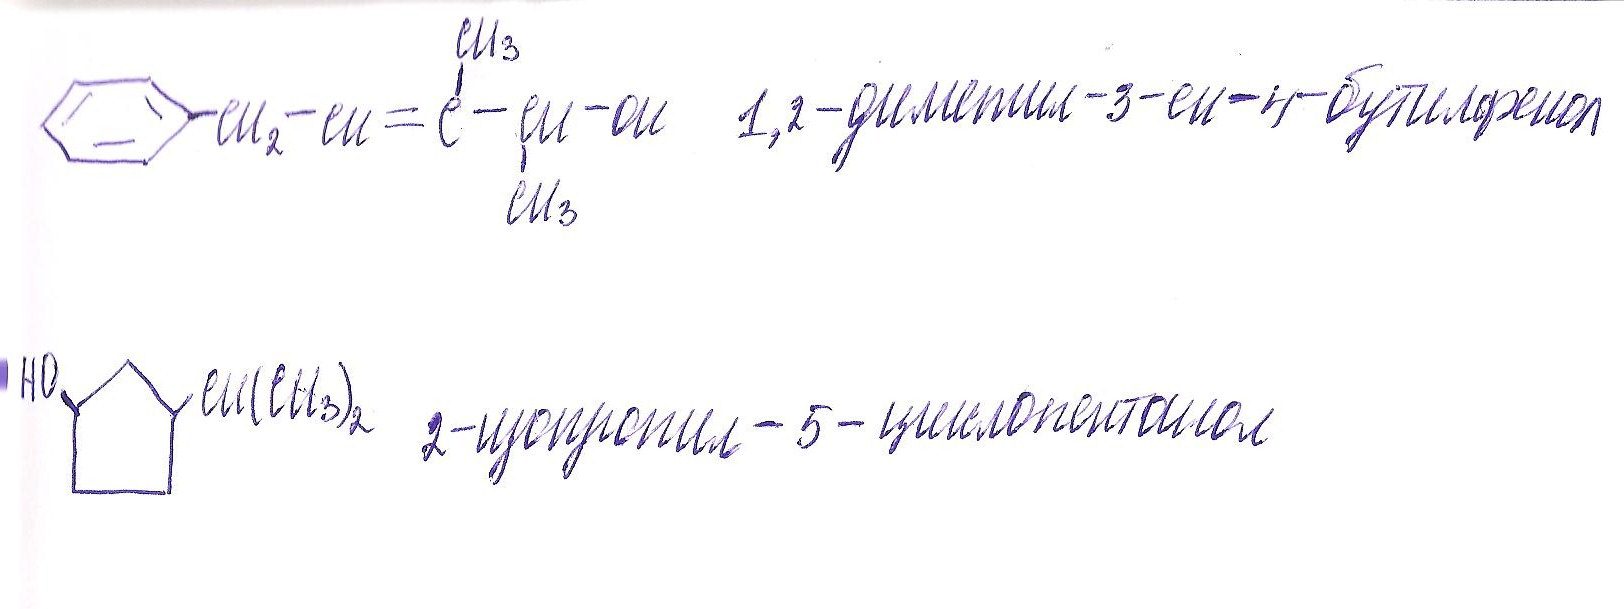 CH3
CH2-CH=C-CH-OH 1,2-диметил-3-ен-4-бутилфенол
CH3
HO CH(CH3)2 2-изопропил-5-циклопентанол